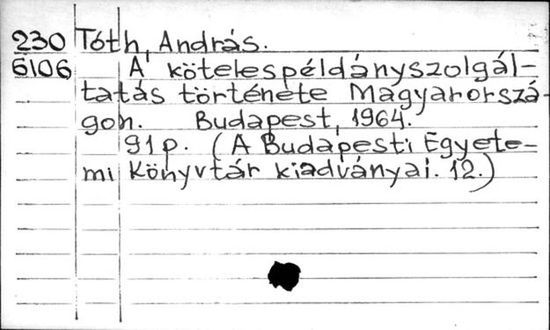 230 Tóth, András.
6106 A kötelespéldányszolgál-
tatás története Magyarorszá-
gon. Budapest, 1964.
91 p. (A Budapesti Egyete-
mi Könyvtár kiadványai. 12.)